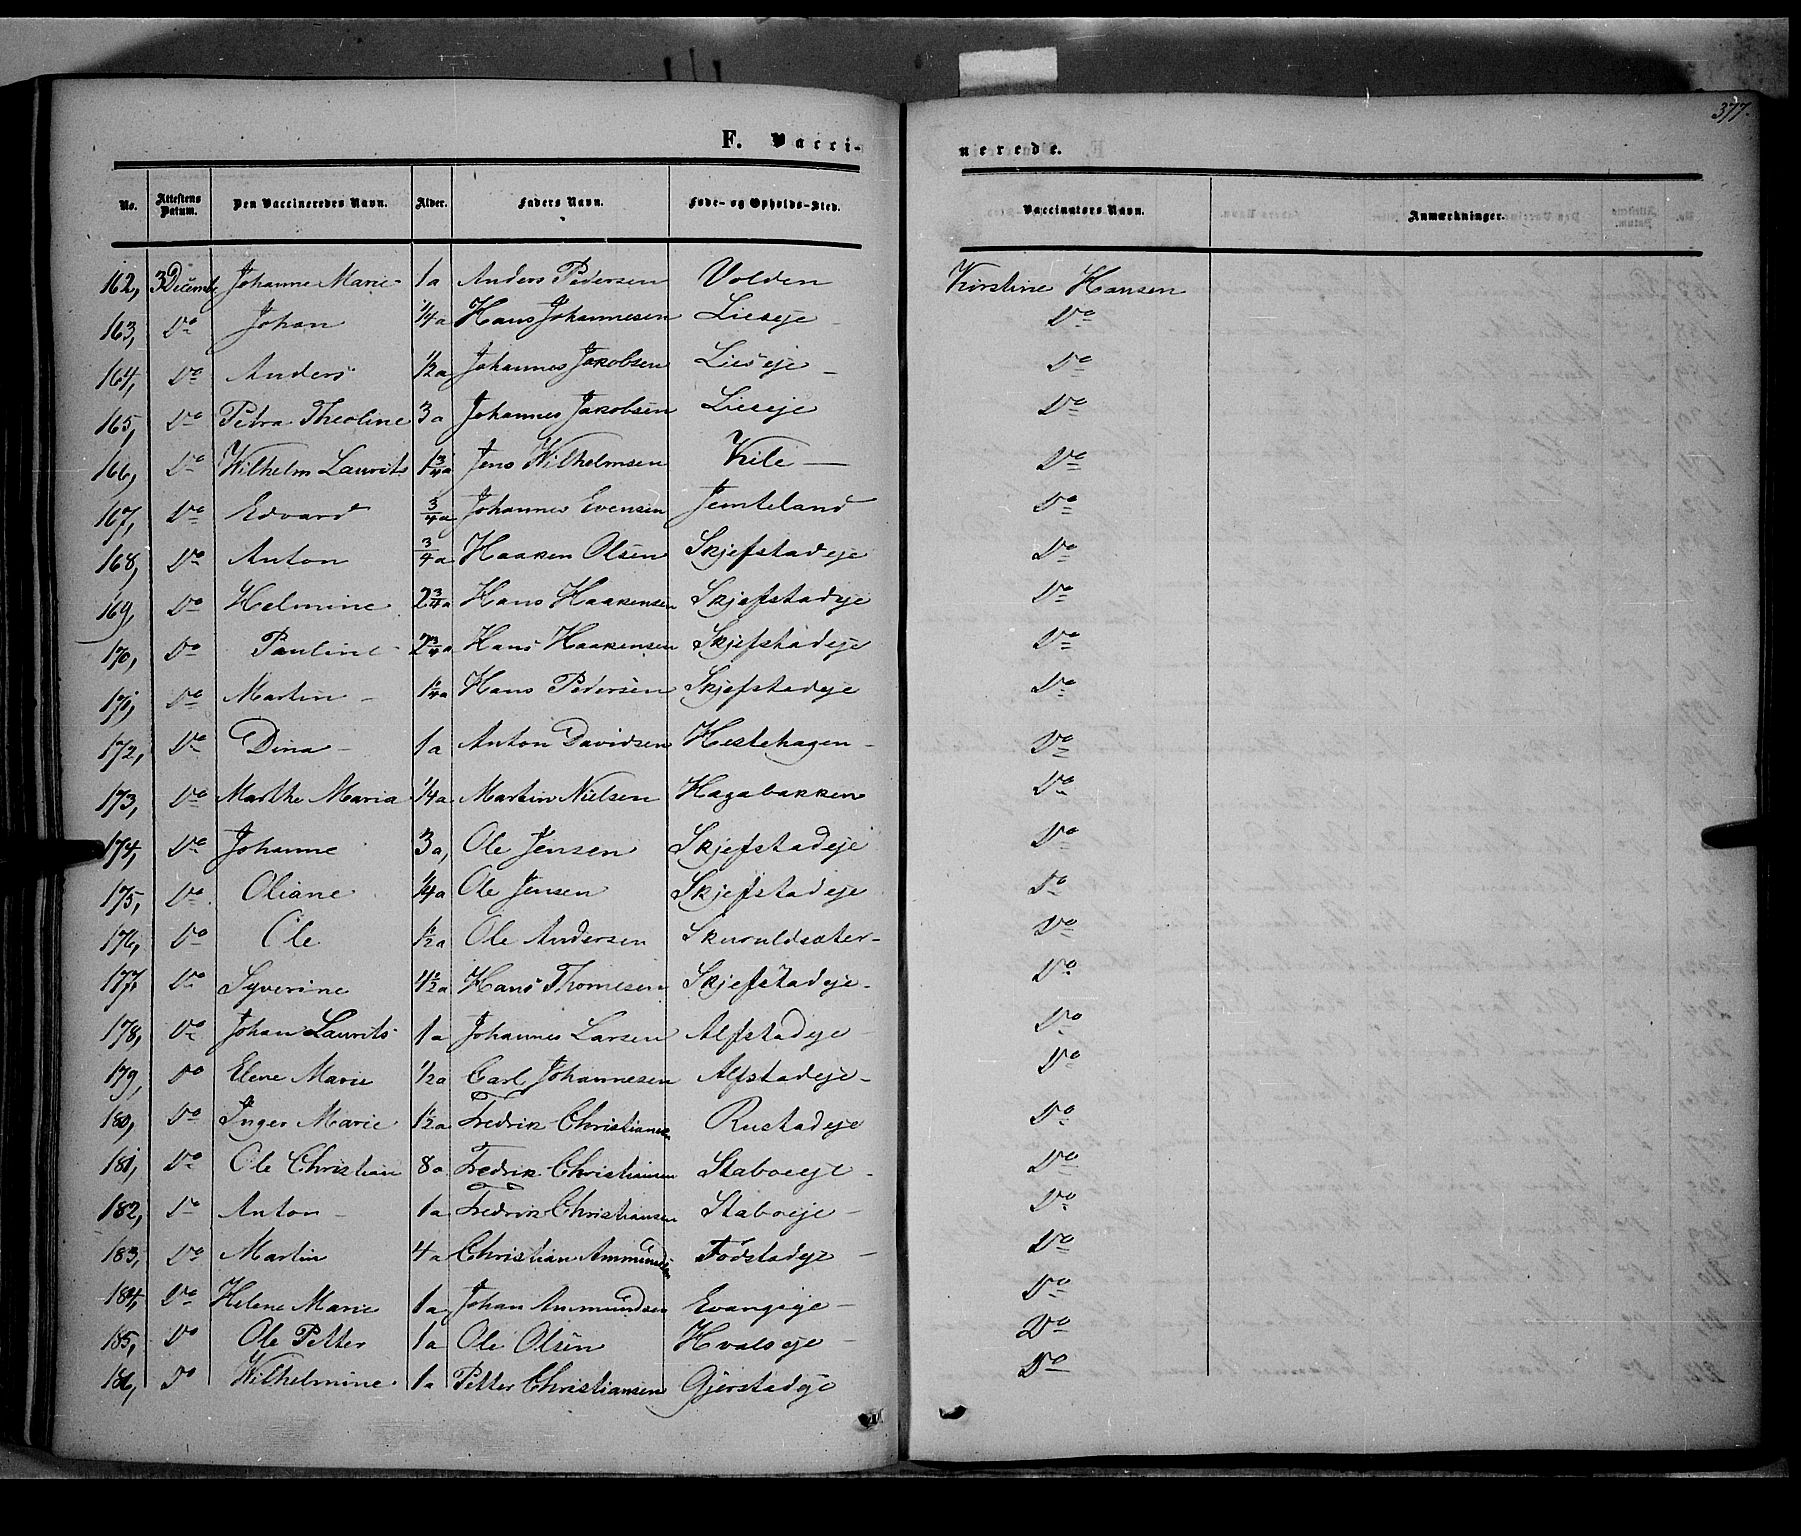 377.
F. Vacci-
nerede.
No. Attestens Datum. Den Vaccineredes Navn. Alder. Faders Navn. Føde- og Opholds-Sted. Vaccinators Navn. Anmærkninger.
162, 3 Decemb Johanne Marie 1a Anders Pedersen Volden Kirstine Hansen
163, Do Johan 1/4a Hans Johannesen Lieseje Do
164, Do Anders 1/2a Johannes Jakobsen Lieseje Do
165, Do Petra Theoline 3a Johannes Jakobsen Lieseje Do
166, Do Wilhelm Laurits 1 3/4a Jens Wilhelmsen Kile Do
167, Do Edvard 3/4a Johannes Evensen Jemteland Do
168, Do Anton 3/4a Haaken Olsen Skjefstadeje Do
169, Do Helmine 2 3/4a Hans Haakensen Skjefstadeje Do
170, Do Pauline 2 3/4a Hans Haakensen Skjefstadeje Do
171, Do Martin 1 1/4a Hans Pedersen Skjefstadeje Do
172, Do Dina 1a Anton Davidsen Hestehagen Do
173, Do Marthe Maria 1/4a Martin Nielsen Hagabakken Do
174, Do Johanne 3a, Ole Jensen Skjefstadeje Do
175, Do Oliane 1/4a Ole Jensen Skjefstadeje Do
176, Do Ole 1/2a Ole Andersen Skuruldsæter Do
177, Do Syverine 4 1/2a Hans Thomesen Skjefstadeje Do
178, Do Johan Laurits 1a Johannes Larsen Alfstadeje Do
179, Do Elene Marie 1/2a Carl Johannesen Alfstadeje Do
180, Do Inger Marie 1 1/2a Fredrik Christiansen Rustadeje Do
181, Do Ole Christian 8a Fredrik Christiansen Staboeje Do
182, Do Anton 1a Fredrik Christiansen Staboeje Do
183, Do Martin 4a Christian Ammundsen Fodstadeje Do
184, Do Helene Marie 1a Johan Ammundsen Evangeje Do
185, Do Ole Petter 1a Ole Olsen Hvalseje Do
186, Do Wilhelmine 1a Petter Christiansen Gjerstadeje Do